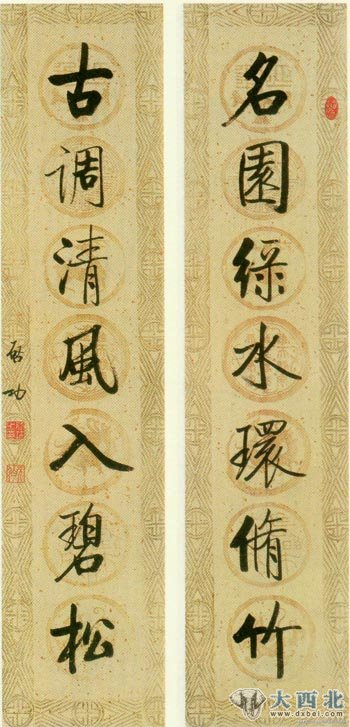 名園綠水環脩竹
古调清風入碧松
啟功
大西北
www.dxbei.com